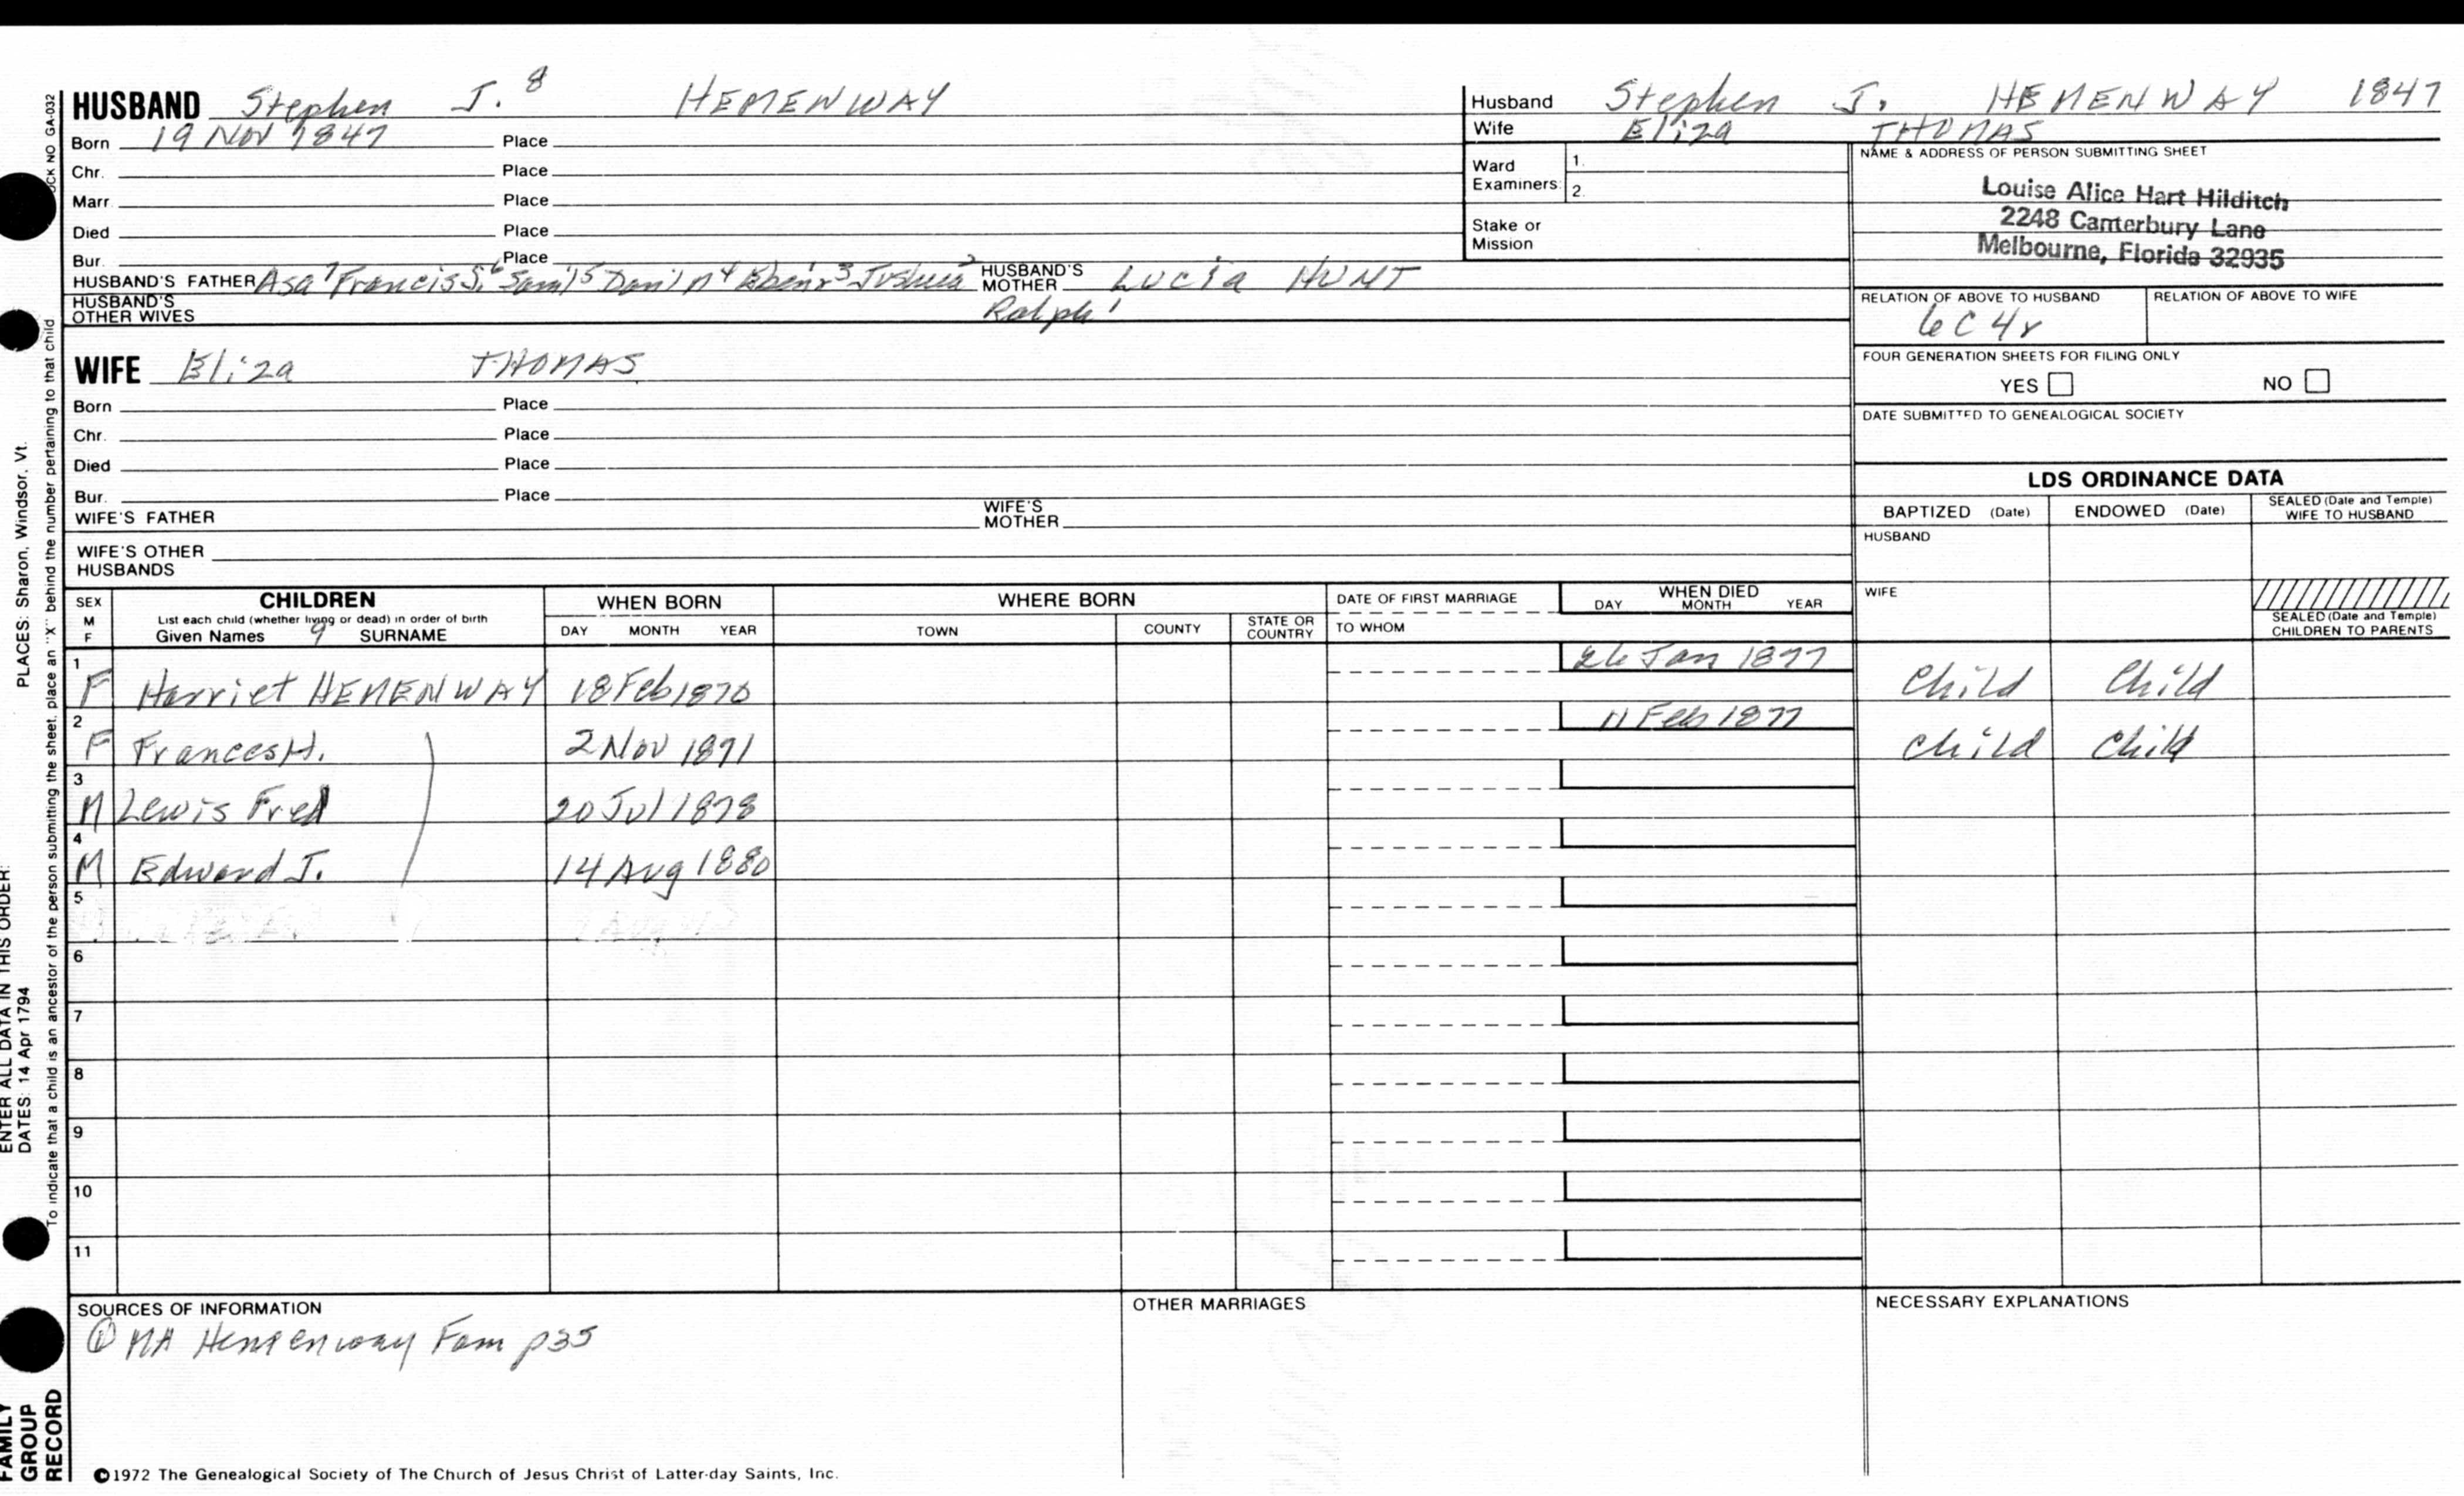 HUSBAND Stephen J.⁸ HEMENWAY
Born 19 Nov 1847 Place
Chr. Place
Marr. Place
Died Place
Bur. Place
HUSBAND'S FATHER Asa⁷ Francis S.⁶ Sam'l⁵ Dan'l⁴ Eben'r³ Joshua² HUSBAND'S MOTHER Lucia HUNT
HUSBAND'S OTHER WIVES Ralph¹
WIFE Eliza THOMAS
Born Place
Chr. Place
Died Place
Bur. Place
WIFE'S FATHER WIFE'S MOTHER
WIFE'S OTHER HUSBANDS
Husband Stephen J. HEMENWAY 1847
Wife Eliza THOMAS
Ward Examiners: 1.
2.
Stake or Mission
NAME & ADDRESS OF PERSON SUBMITTING SHEET
Louise Alice Hart Hilditch
2248 Canterbury Lane
Melbourne, Florida 32935
RELATION OF ABOVE TO HUSBAND RELATION OF ABOVE TO WIFE
6C4r
FOUR GENERATION SHEETS FOR FILING ONLY
YES NO
DATE SUBMITTED TO GENEALOGICAL SOCIETY
LDS ORDINANCE DATA
BAPTIZED (Date) ENDOWED (Date) SEALED (Date and Temple) WIFE TO HUSBAND
HUSBAND
WIFE
SEALED (Date and Temple) CHILDREN TO PARENTS
SEX M F CHILDREN WHEN BORN WHERE BORN DATE OF FIRST MARRIAGE WHEN DIED
List each child (whether living or dead) in order of birth
Given Names 9 SURNAME DAY MONTH YEAR TOWN COUNTY STATE OR COUNTRY TO WHOM DAY MONTH YEAR
1 F Harriet HEMENWAY 18 Feb 1870 26 Jan 1877 Child Child
2 F Frances H. 2 Nov 1871 11 Feb 1877 Child Child
3 M Lewis Fred 20 Jul 1878
4 M Edward J. 14 Aug 1880
5
6
7
8
9
10
11
SOURCES OF INFORMATION OTHER MARRIAGES NECESSARY EXPLANATIONS
① MA Hemenway Fam p35
©1972 The Genealogical Society of The Church of Jesus Christ of Latter-day Saints, Inc.
FAMILY GROUP RECORD
ENTER ALL DATA IN THIS ORDER:
DATES: 14 Apr 1794 PLACES: Sharon, Windsor, Vt.
To indicate that a child is an ancestor of the person submitting the sheet, place an "X" behind the number pertaining to that child
CK NO GA-032